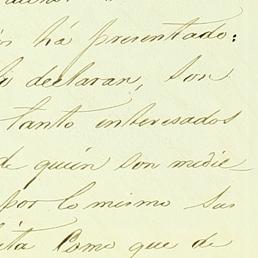 ha presentado:
declaran, son
tanto enteresados
de quién son medie-
por lo mismo sus
Como que de